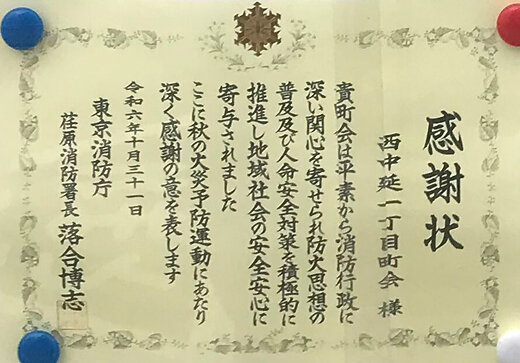 感謝状
西中延一丁目町会 様
貴町会は平素から消防行政に
深い関心を寄せられ防火思想の
普及及び人命安全対策を積極的に
推進し地域社会の安全安心に
寄与されました
ここに秋の火災予防運動にあたり
深く感謝の意を表します
令和六年十月三十一日
東京消防庁
荏原消防署長 落合博志